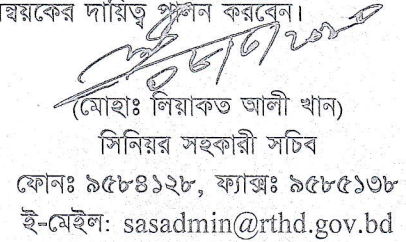 ন্বয়কের দায়িত্ব পালন করবেন।
(মোহাঃ লিয়াকত আলী খান)
সিনিয়র সহকারী সচিব
ফোনঃ ৯৫৮৪১২৮, ফ্যাক্সঃ ৯৫৮৫১৩৮
ই-মেইল: sasadmin@rthd.gov.bd